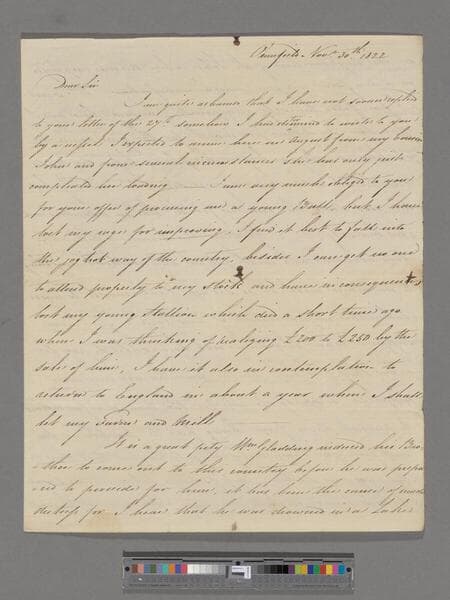 Novr 30th 1822
Dear Sir
I am quite ashamed that I have not sooner replied
to your letter of the 27th somehow I had determined to write to you
by a vessel I expected to arrive here in August from my cousin
John and from several circumstances she has only just
completed her loading — I am very much obliged to you
for your offer of procuring me a young Bull, but I have
lost my rage for improving, I find it best to fall into
the jog trot way of the country, besides I can get no one
to attend properly to my stock and have in consequence
lost my young Stallion which died a short time ago
when I was thinking of realizing £200 to £250 by the
sale of him, I have it also in contemplation to
return to England in about a year when I shall
let my Farm and Mill
It is a great pity Wm Gladding induced his Bro-
-ther to come out to this country before he was prepa-
-red to provide for him, it has been the cause of much
distress for I hear that he was drowned in a Lake